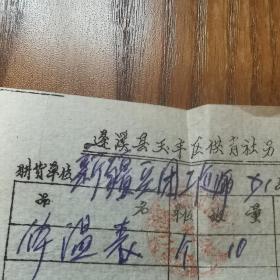 遂溪县天平区供肖社另
购货单位新疆兵团工
品名 单位 数量
体温表 个 10